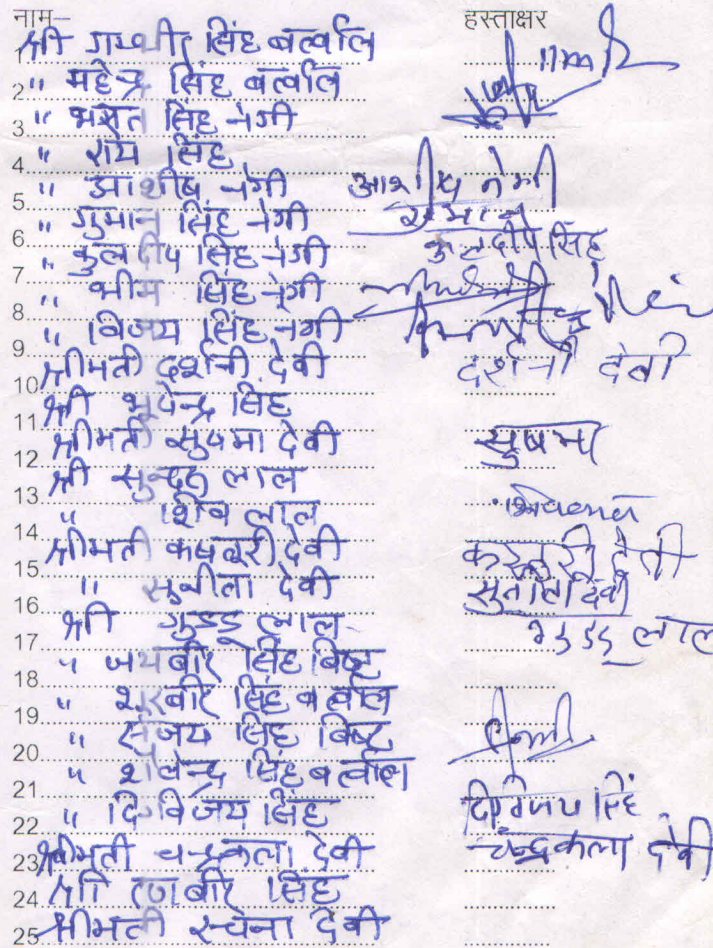 नाम— हस्ताक्षर
1 श्री गम्भीर सिंह बर्त्वाल
2 " महेन्द्र सिंह बर्त्वाल
3 " भरत सिंह नेगी
4 " राय सिंह
5 " आशीष नेगी आशीष नेगी
6 " गुमान सिंह नेगी गुमान
7 " कुलदीप सिंह नेगी कुलदीप सिंह
8 " भीम सिंह नेगी
9 " विजय सिंह नेगी
10 श्रीमती दर्शनी देवी दर्शनी देवी
11 श्री भूपेन्द्र सिंह
12 श्रीमती सुषमा देवी सुषमा
13 श्री सुन्दर लाल
14 " शिव लाल
15 श्रीमती कस्तूरी देवी कस्तुरी देवी
16 " सुनीता देवी सुनीता देवी
17 श्री गुड्डू लाल गुड्डू लाल
18 " जयबीर सिंह बिष्ट
19 " शूरबीर सिंह बर्त्वाल
20 " संजय सिंह बिष्ट
21 " शैलेन्द्र सिंह बर्त्वाल
22 " दिग्विजय सिंह दिग्विजय सिंह
23 श्रीमती चन्द्रकला देवी चन्द्रकला देवी
24 श्री रणबीर सिंह
25 श्रीमती रचना देवी